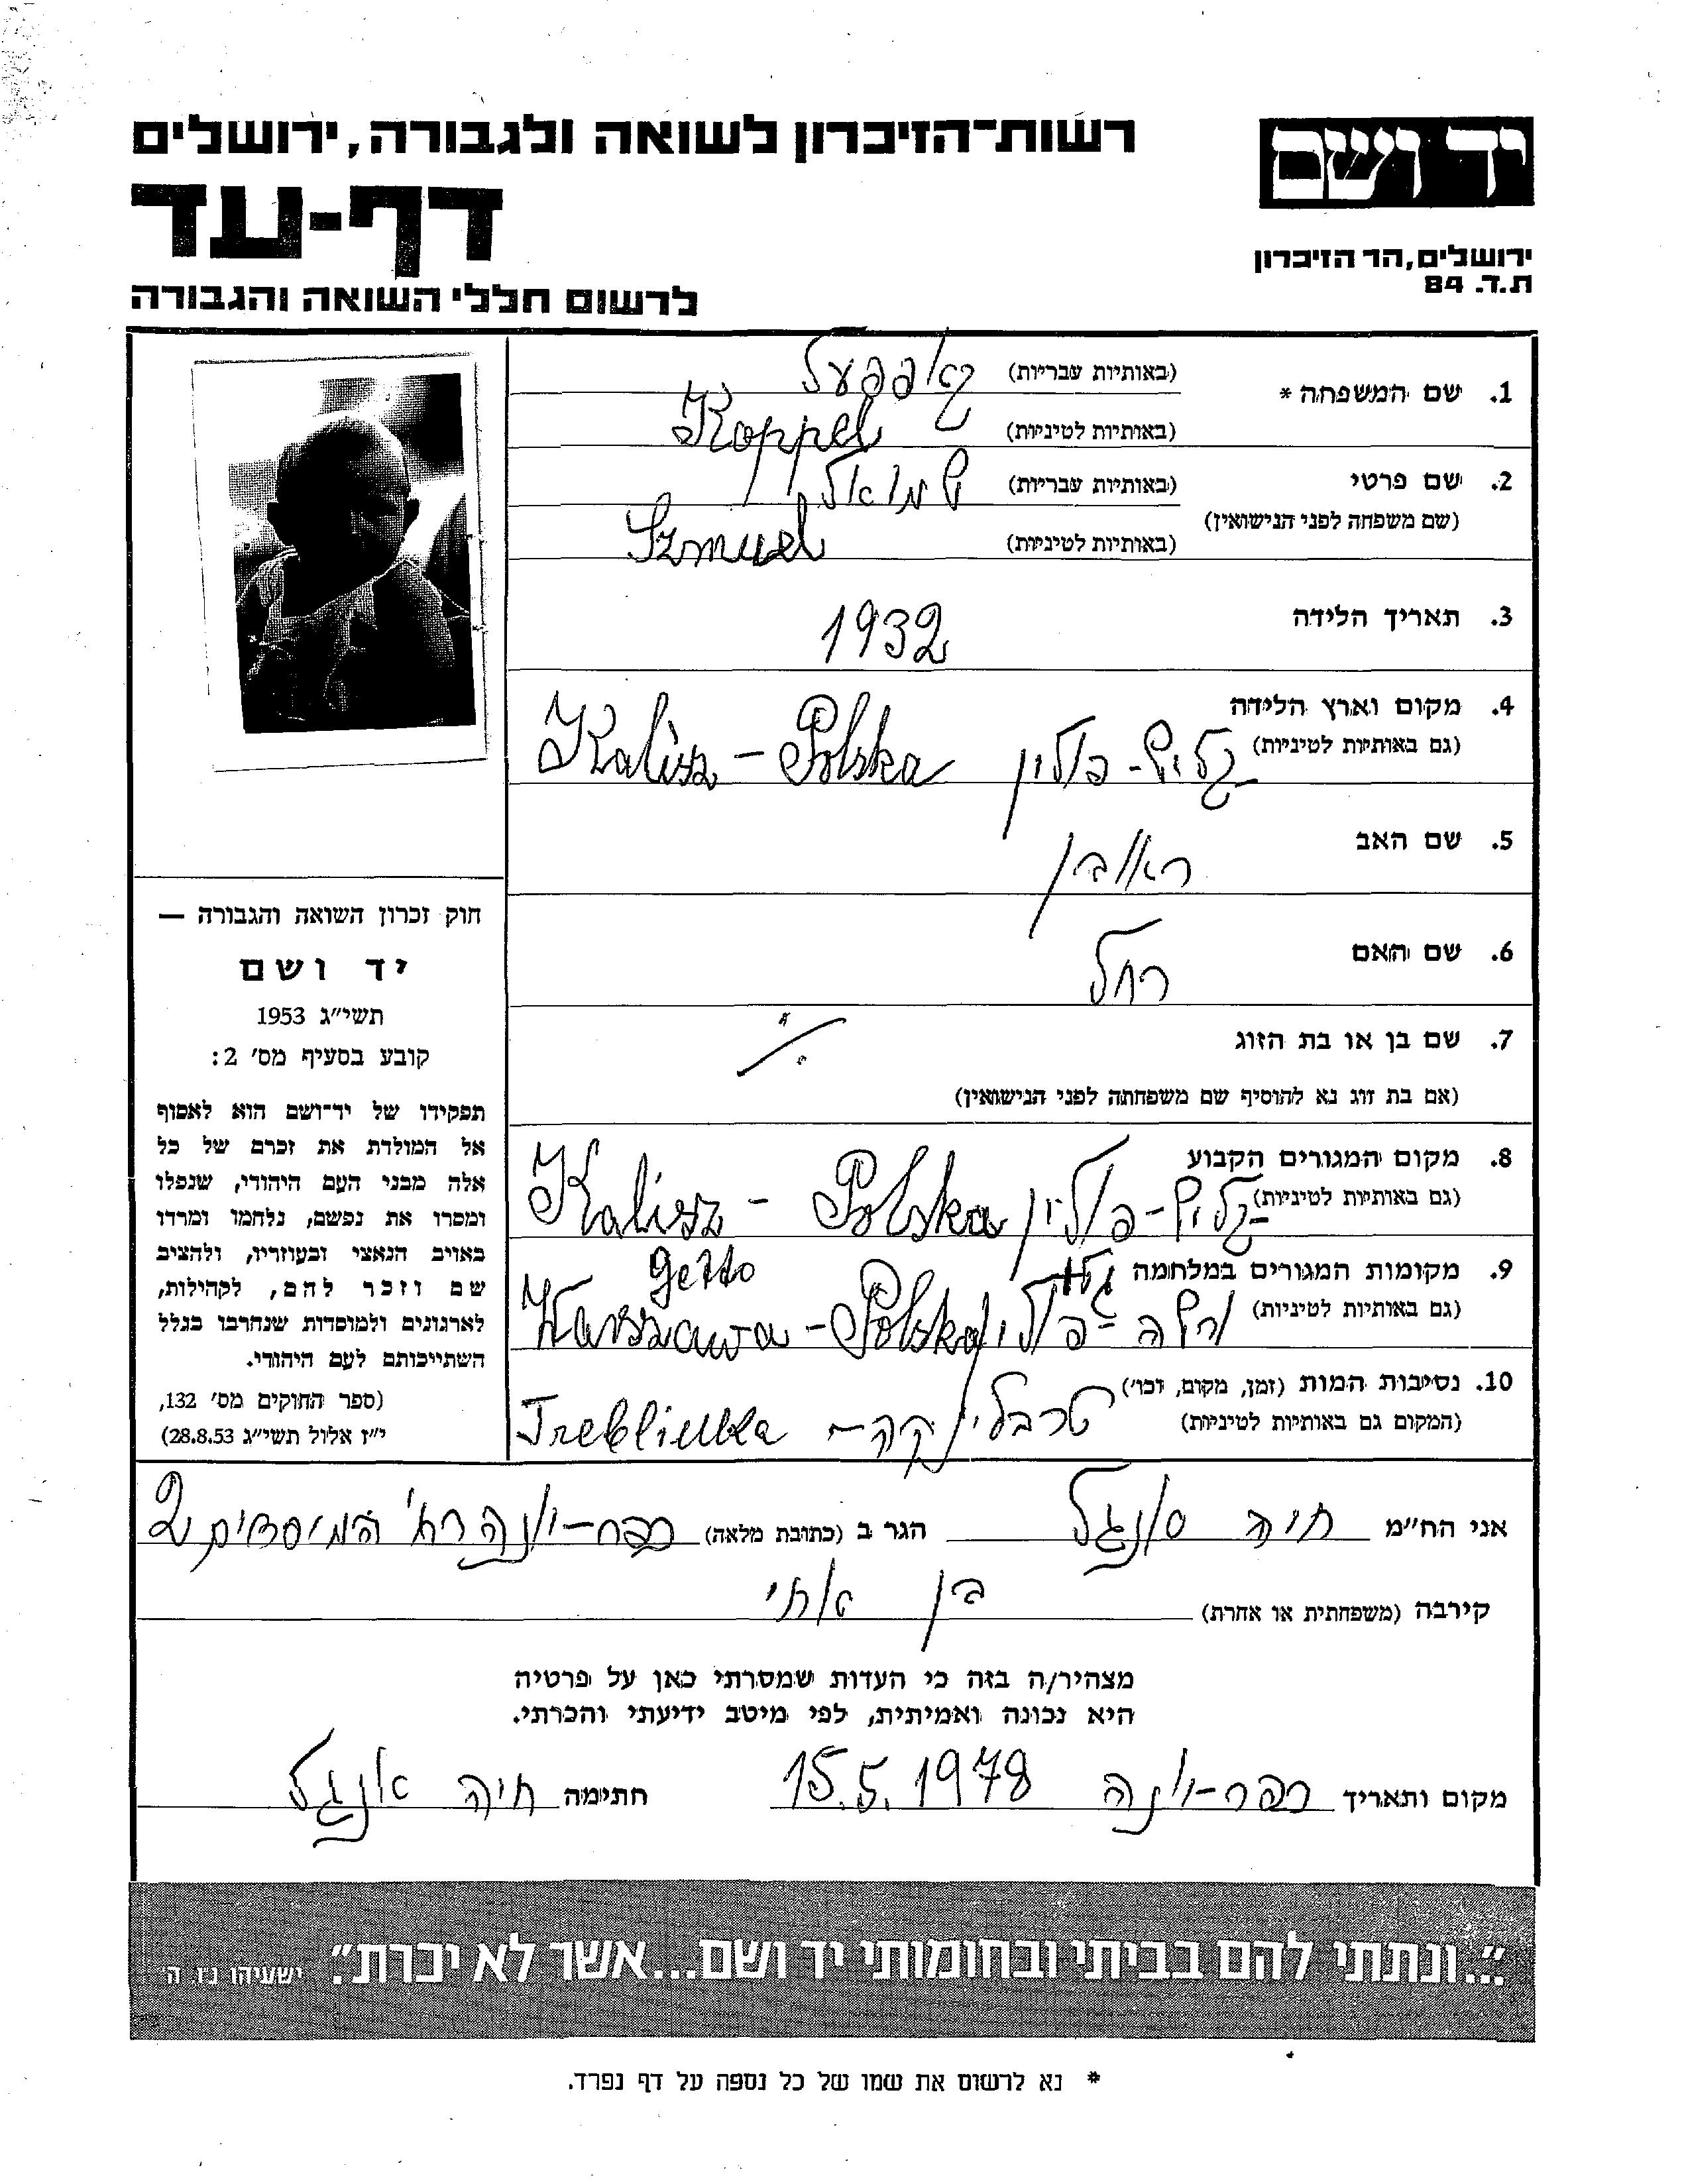 רשות-הזיכרון לשואה ולגבורה, ירושלים
דף-עד
לרשום חללי השואה והגבורה
יד ושם
ירושלים, הר הזיכרון
ת.ד. 84
1. שם המשפחה * (באותיות עבריות) קאפפעל
(באותיות לטיניות) Koppel
2. שם פרטי (באותיות עבריות) שמואל
(שם משפחה לפני הנישואין)
(באותיות לטיניות) Szmuel
3. תאריך הלידה 1932
4. מקום וארץ הלידה
(גם באותיות לטיניות) קליש - פולין Kalisz - Polska
5. שם האב ראובן
6. שם האם רחל
7. שם בן או בת הזוג
(אם בת זוג נא להוסיף שם משפחתה לפני הנישואין)
8. מקום המגורים הקבוע
(גם באותיות לטיניות) קליש - פולין Kalisz - Polska
9. מקומות המגורים במלחמה גטו Getto
(גם באותיות לטיניות) ורשה - פולין Warszawa - Polska
10. נסיבות המות (זמן, מקום, וכו')
(המקום גם באותיות לטיניות) טרבלינקה - Trebliuka
חוק זכרון השואה והגבורה —
יד ושם
תשי"ג 1953
קובע בסעיף מס' 2:
תפקידו של יד-ושם הוא לאסוף
אל המולדת את זכרם של כל
אלה מבני העם היהודי, שנפלו
ומסרו את נפשם, נלחמו ומרדו
באויב הנאצי ובעוזריו, ולהציב
שם וזכר להם, לקהילות,
לארגונים ולמוסדות שנחרבו בגלל
השתייכותם לעם היהודי.
(ספר החוקים מס' 132,
י"ז אלול תשי"ג 28.8.53)
אני הח"מ חיה אנגל הגר ב (כתובת מלאה) כפר-יונה רח' המיסדים 2
קירבה (משפחתית או אחרת) בן אחי
מצהיר/ה בזה כי העדות שמסרתי כאן על פרטיה
היא נכונה ואמיתית, לפי מיטב ידיעתי והכרתי.
מקום ותאריך כפר-יונה 15.5.1978 חתימה חיה אנגל
"...ונתתי להם בביתי ובחומותי יד ושם...אשר לא יכרת". ישעיהו נ"ו, ה'
* נא לרשום את שמו של כל נספה על דף נפרד.